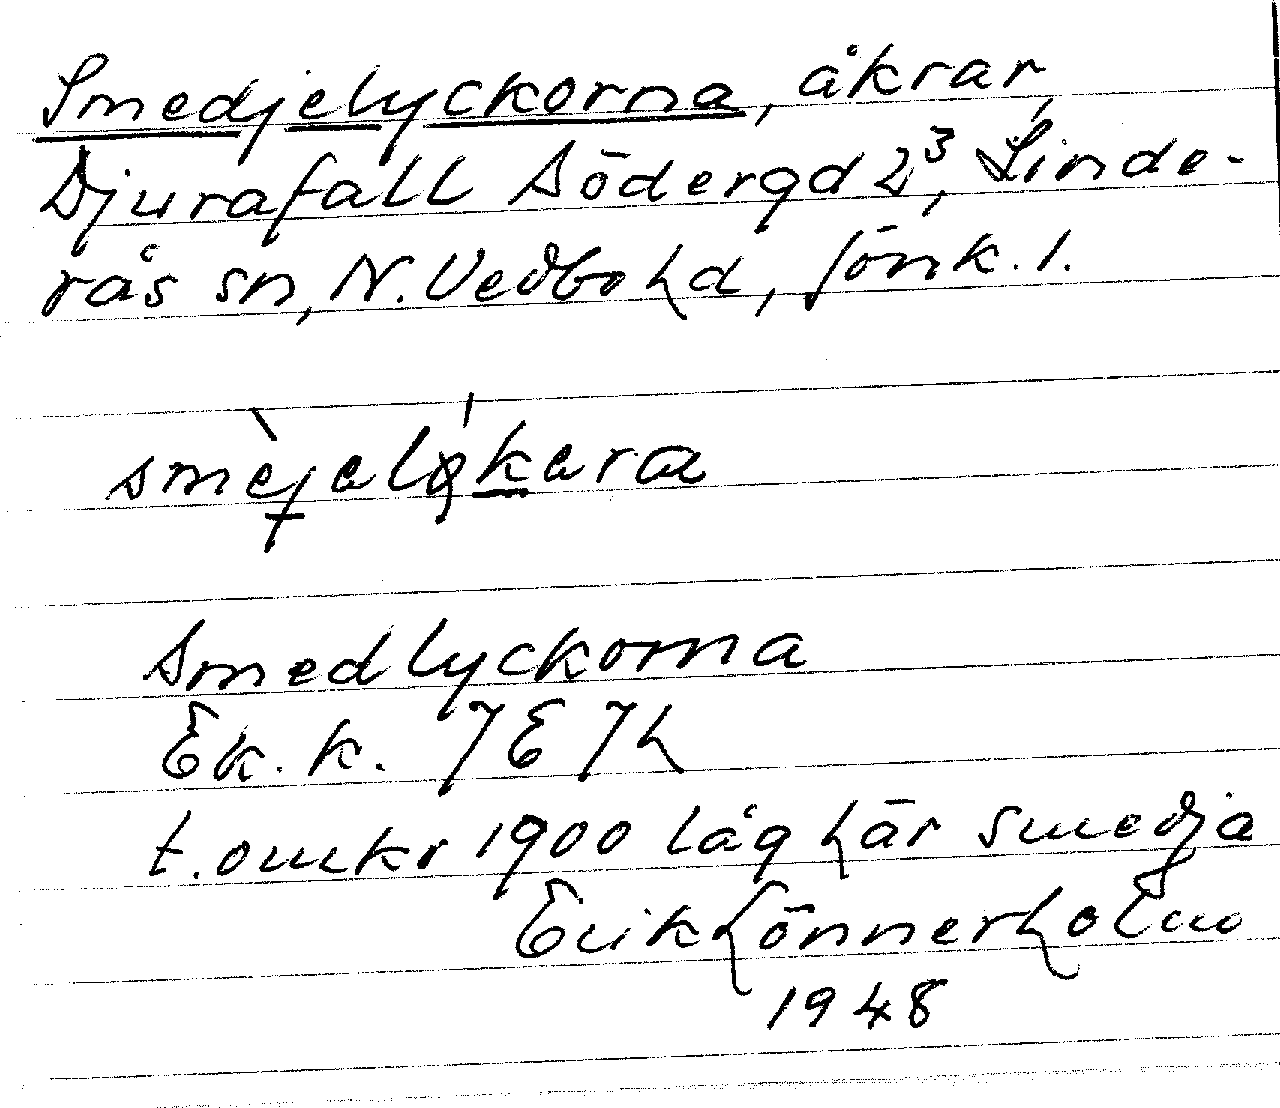 Smedjelyckorna, åkrar,
Djurafall Södergd 2³, Linde-
rås sn, N. Vedbo hd, Jönk. l.
smèjelǿkera
Smedlyckorna
Ek. k. 7E7h
t. omkr 1900 låg här smedja
Erik Hönnerholm
1948